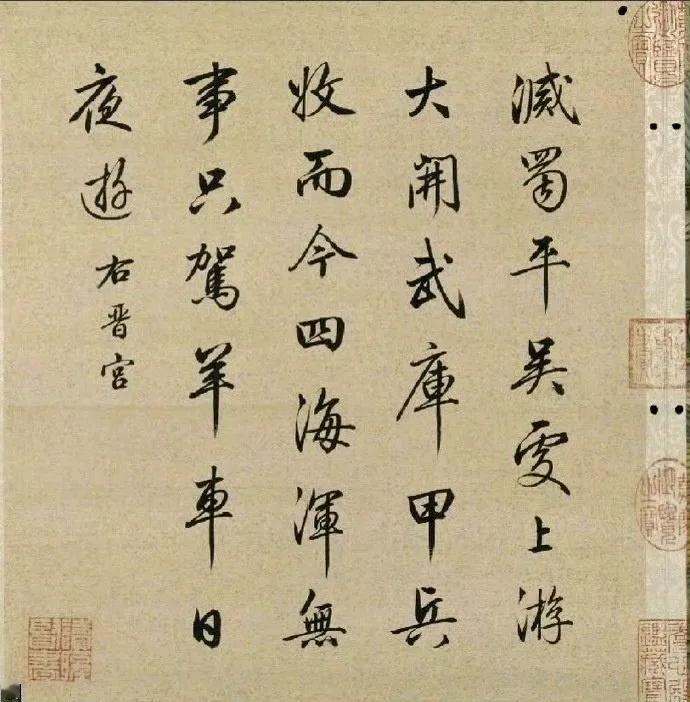 滅蜀平吳受上游
大開武庫甲兵
收而今四海渾無
事只駕羊車日
夜遊 右晉宮